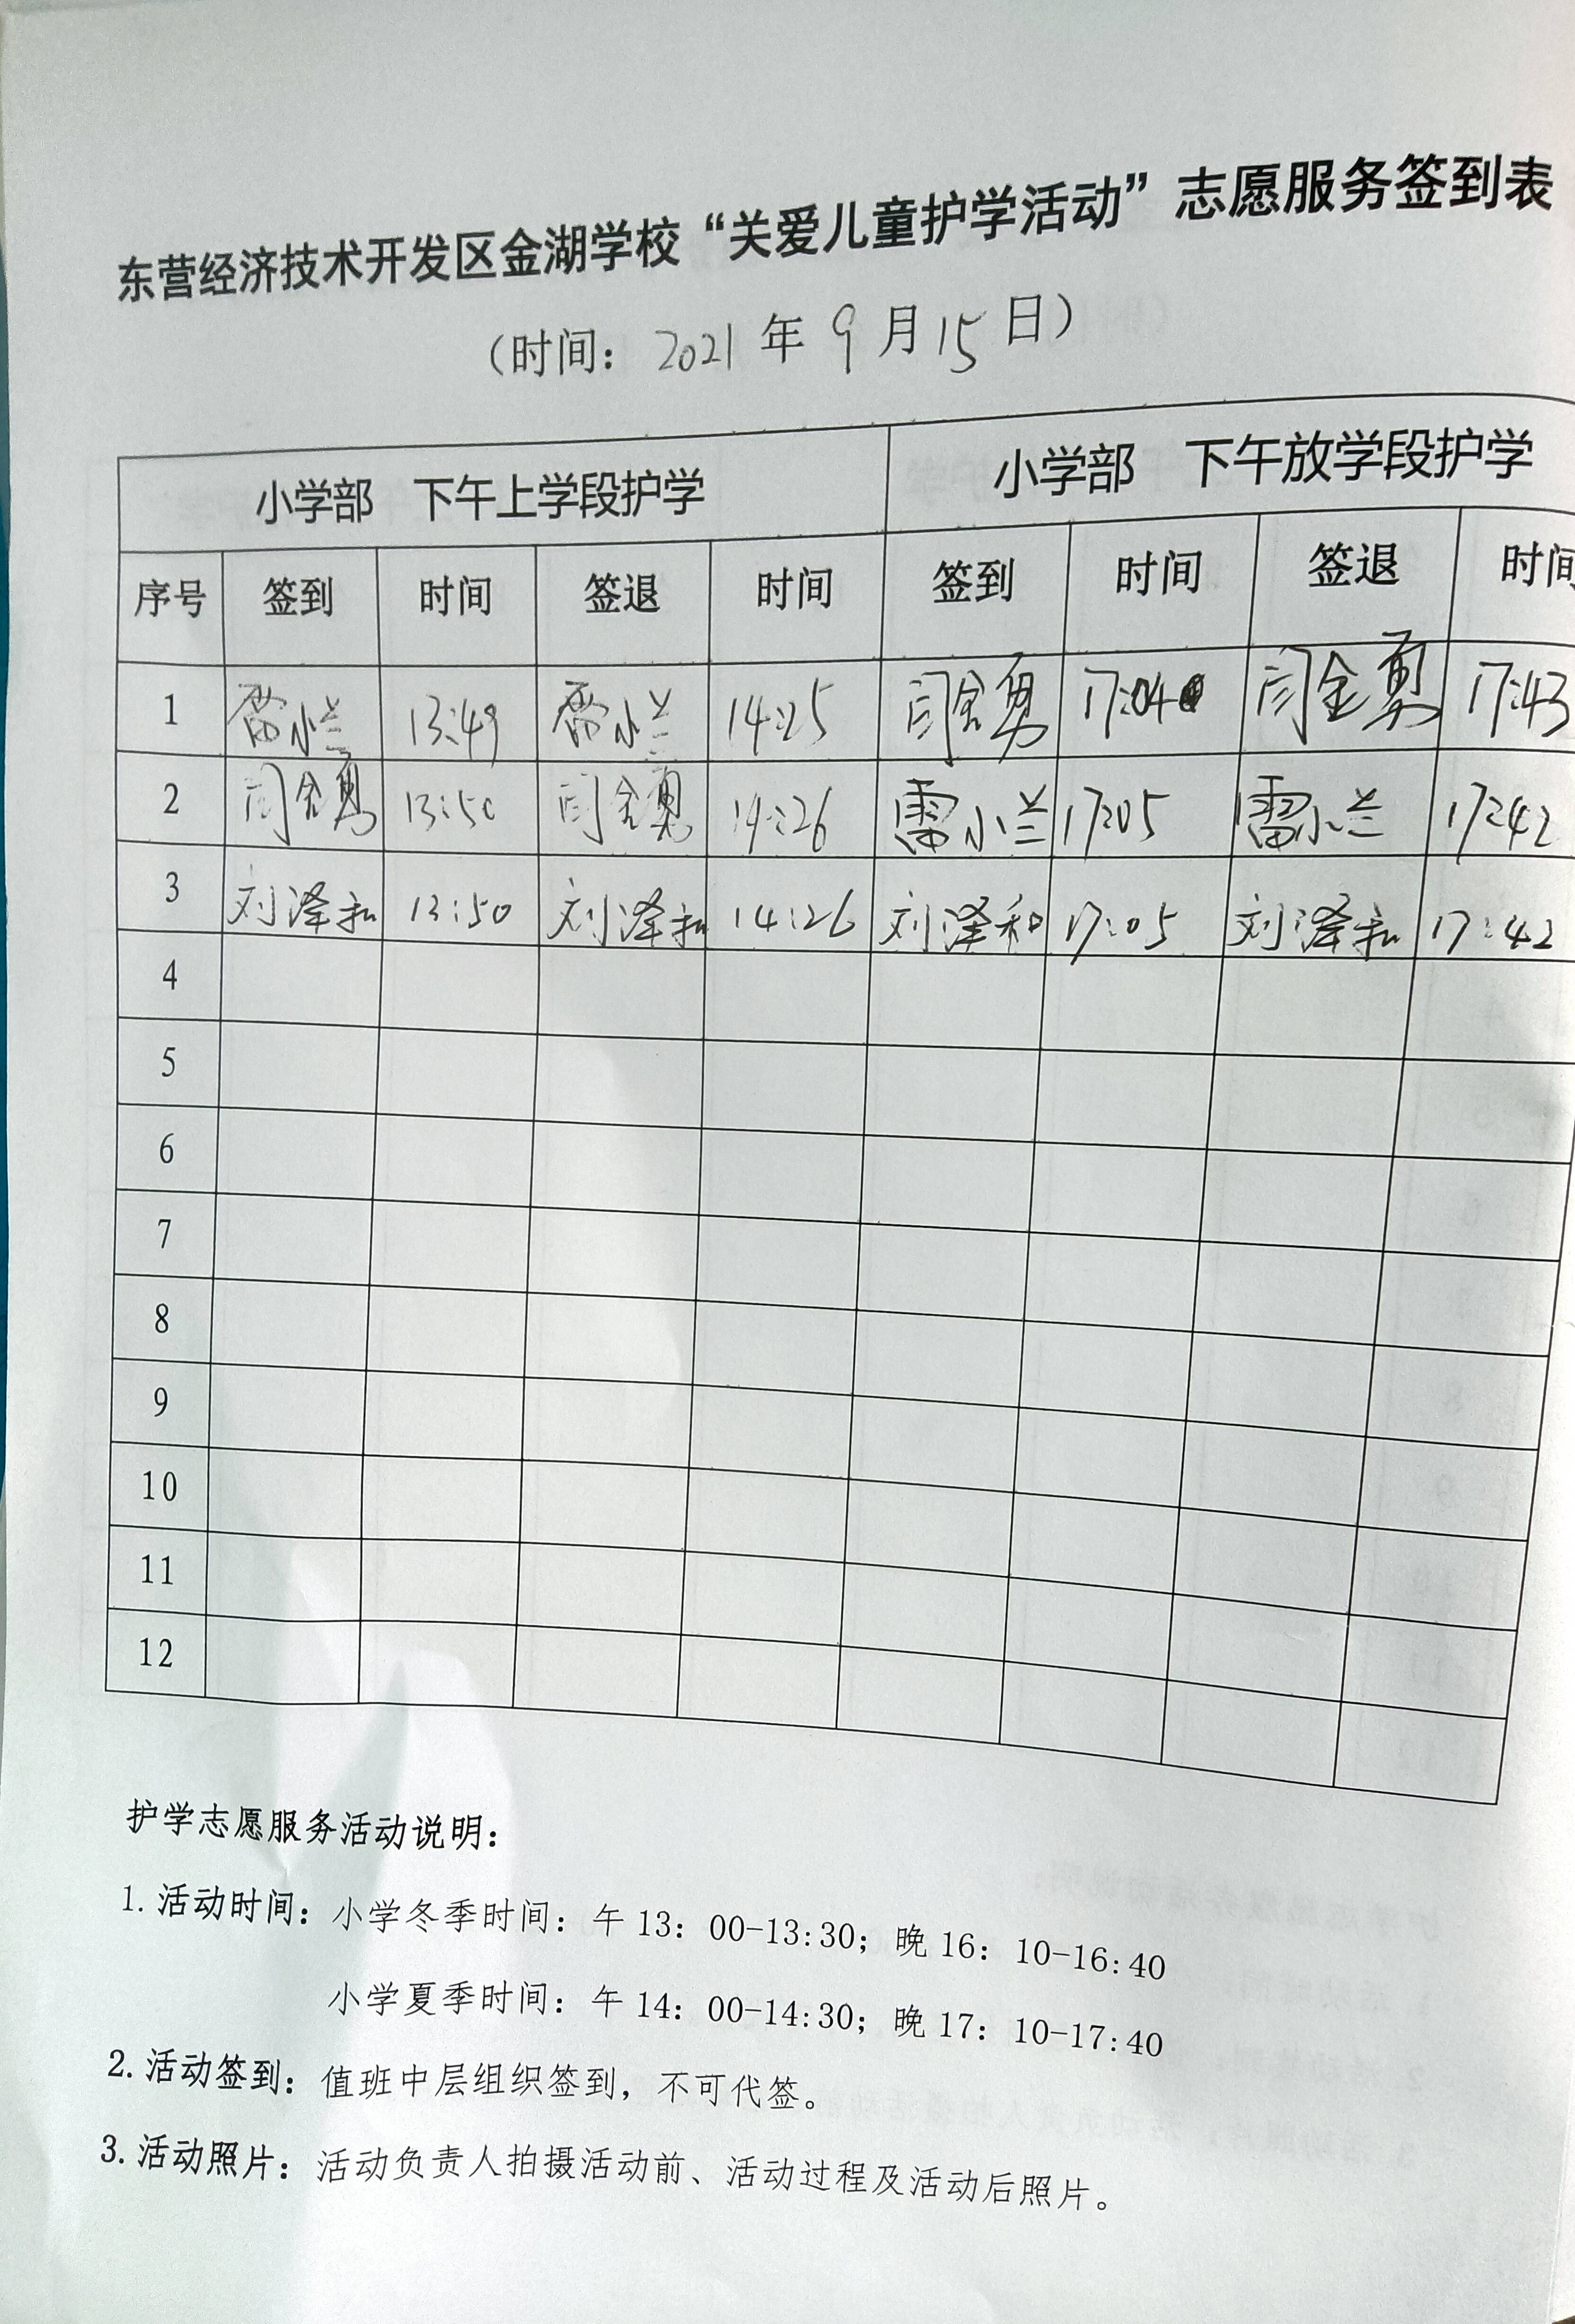 东营经济技术开发区金湖学校“关爱儿童护学活动”志愿服务签到表
（时间：2021年9月15日）
小学部 下午上学段护学 小学部 下午放学段护学
序号 签到 时间 签退 时间 签到 时间 签退 时间
1 雷小兰 13:49 雷小兰 14:25 闫金勇 17:04 闫金勇 17:43
2 闫金勇 13:50 闫金勇 14:26 雷小兰 17:05 雷小兰 17:42
3 刘泽和 13:50 刘泽和 14:26 刘泽和 17:05 刘泽和 17:42
4
5
6
7
8
9
10
11
12
护学志愿服务活动说明：
1.活动时间：小学冬季时间：午13：00-13:30；晚16：10-16:40
小学夏季时间：午14：00-14:30；晚17：10-17:40
2.活动签到：值班中层组织签到，不可代签。
3.活动照片：活动负责人拍摄活动前、活动过程及活动后照片。